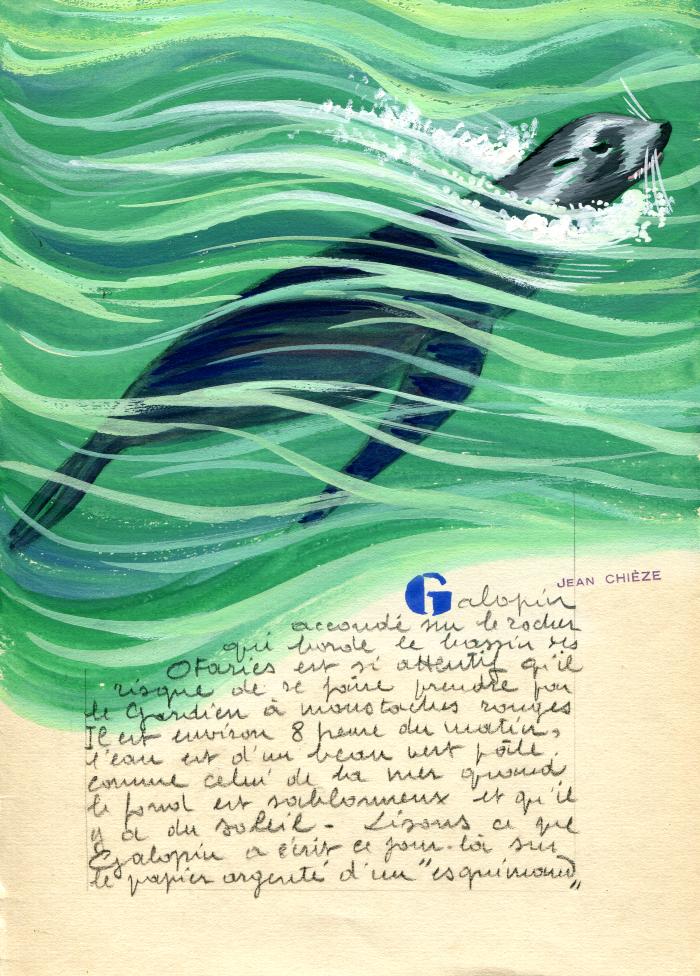 JEAN CHIÈZE
Galopin
accoudé sur le rocher
qui borde le bassin des
OTaries est si attentif qu'il
risque de se faire prendre par
le Gardien à moustaches rouges
Il est environ 8 heure du matin,
l'eau est d'un beau vert pâle
comme celui de la mer quand
le fond est sablonneux et qu'il
y a du soleil - Lisons ce que
Galopin a écrit ce jour-là sur
le papier argenté d'un "esquimaud"